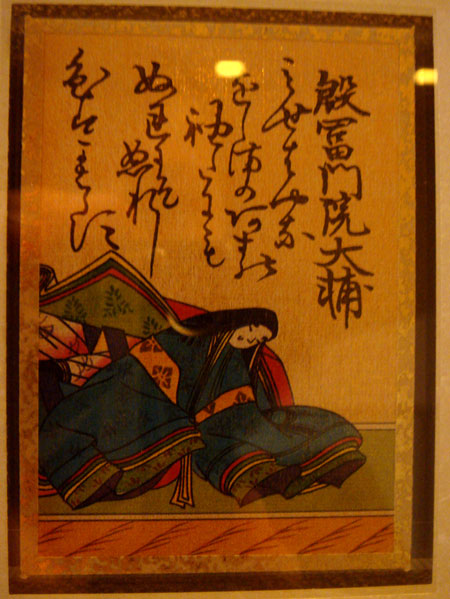 殷富門院大輔
みせはやな
をしまのあまの
袖たにも
ぬれにそ
ぬれし
色はかはらす